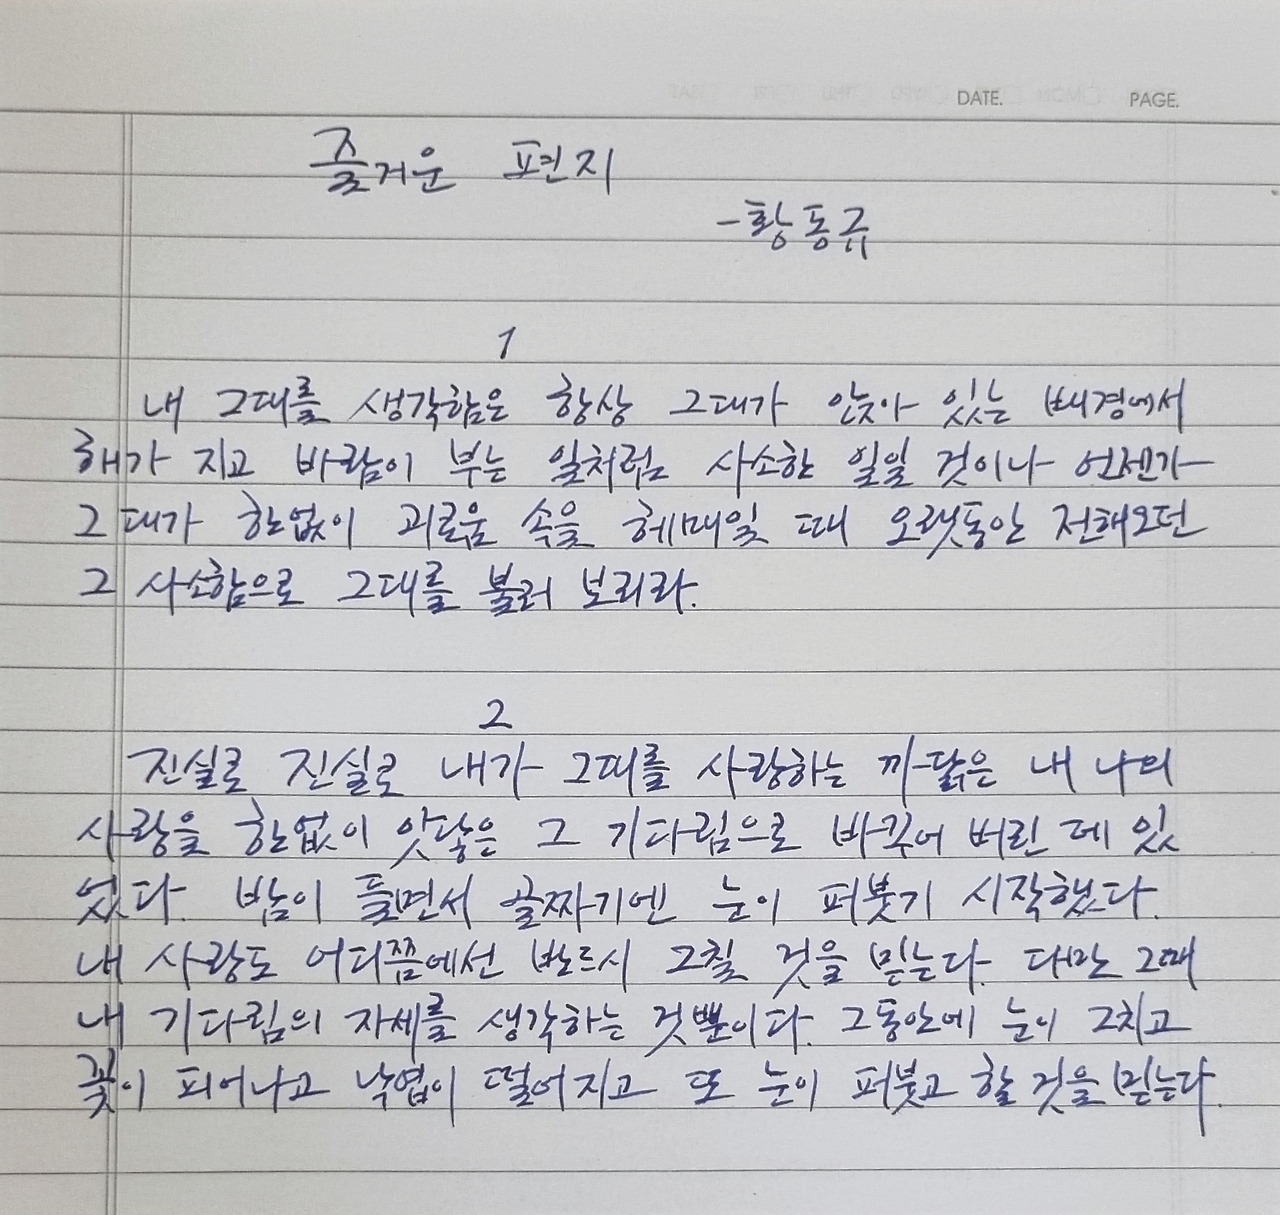 DATE. PAGE.
즐거운 편지
-황동규
1
내 그대를 생각함은 항상 그대가 앉아 있는 배경에서
해가 지고 바람이 부는 일처럼 사소한 일일 것이나 언젠가
그대가 한없이 괴로움 속을 헤매일 때 오랫동안 전해오던
그 사소함으로 그대를 불러 보리라.
2
진실로 진실로 내가 그대를 사랑하는 까닭은 내 나의
사랑을 한없이 잇닿은 그 기다림으로 바꾸어 버린 데 있
었다. 밤이 들면서 골짜기엔 눈이 퍼붓기 시작했다.
내 사랑도 어디쯤에선 반드시 그칠 것을 믿는다. 다만 그때
내 기다림의 자세를 생각하는 것뿐이다. 그동안에 눈이 그치고
꽃이 피어나고 낙엽이 떨어지고 또 눈이 퍼붓고 할 것을 믿는다.